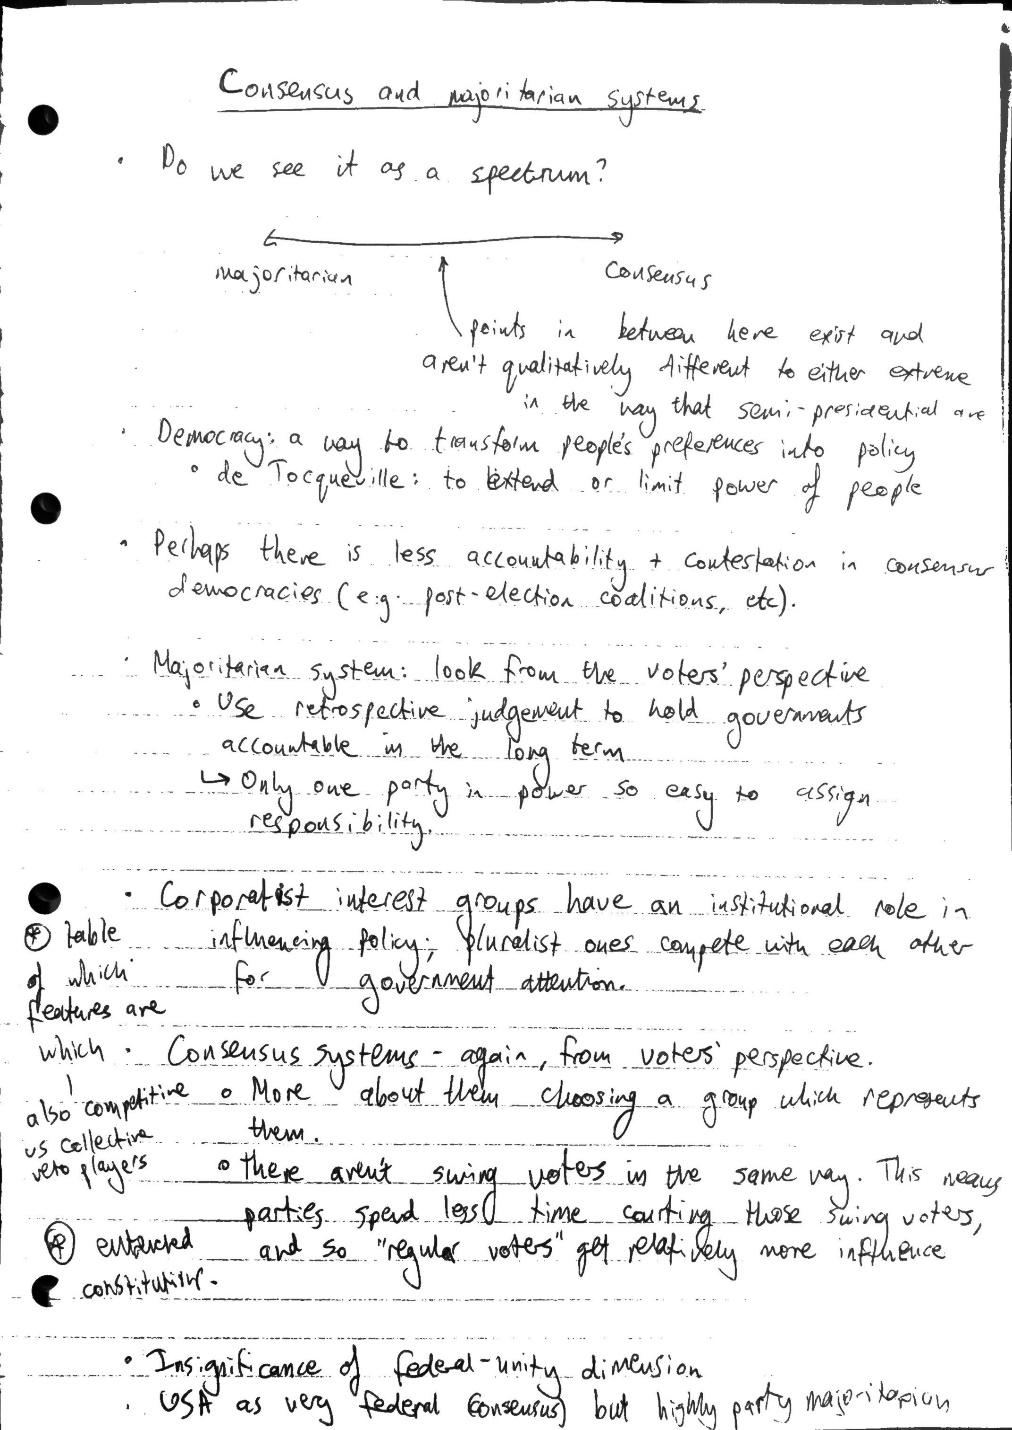 Consensus and majoritarian systems
· Do we see it as a spectrum?
majoritarian
consensus
points in between here exist and
aren't qualitatively different to either extreme
in the way that semi-presidential are
· Democracy: a way to transform people's preferences into policy
∘ de Tocqueville: to extend or limit power of people
· Perhaps there is less accountability + contestation in consensus
democracies (e.g. post-election coalitions, etc).
· Majoritarian system: look from the voters' perspective
∘ Use retrospective judgement to hold governments
accountable in the long term
↳ Only one party in power so easy to assign
responsibility.
· Corporatist interest groups have an institutional role in
influencing policy; pluralist ones compete with each other
for government attention.
⊛ table
of which
features are
which
also competitive
vs collective
veto players
· Consensus systems - again, from voters' perspective.
∘ More about them choosing a group which represents
them.
∘ There aren't swing voters in the same way. This means
parties spend less time courting those swing voters,
and so "regular voters" get relatively more influence
⊛ entrenched
constitutions.
· Insignificance of federal-unity dimension
· USA as very federal (consensus) but highly party majoritarian